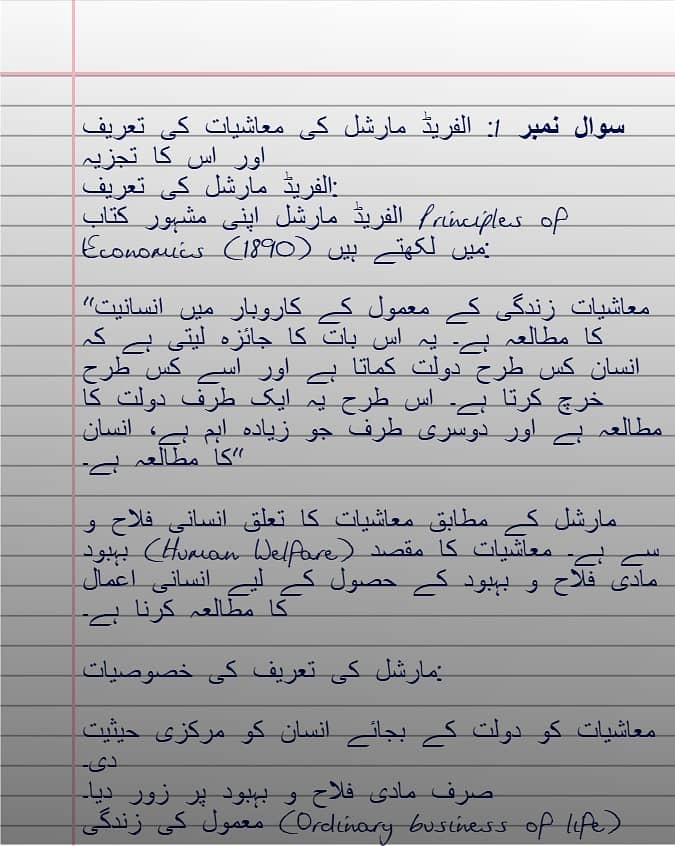 سوال نمبر 1: الفریڈ مارشل کی معاشیات کی تعریف
اور اس کا تجزیہ
الفریڈ مارشل کی تعریف:
الفریڈ مارشل اپنی مشہور کتاب Principles of
Economics (1890) میں لکھتے ہیں:
"معاشیات زندگی کے معمول کے کاروبار میں انسانیت
کا مطالعہ ہے۔ یہ اس بات کا جائزہ لیتی ہے کہ
انسان کس طرح دولت کماتا ہے اور اسے کس طرح
خرچ کرتا ہے۔ اس طرح یہ ایک طرف دولت کا
مطالعہ ہے اور دوسری طرف جو زیادہ اہم ہے، انسان
کا مطالعہ ہے۔"
مارشل کے مطابق معاشیات کا تعلق انسانی فلاح و
بہبود (Human Welfare) سے ہے۔ معاشیات کا مقصد
مادی فلاح و بہبود کے حصول کے لیے انسانی اعمال
کا مطالعہ کرنا ہے۔
مارشل کی تعریف کی خصوصیات:
معاشیات کو دولت کے بجائے انسان کو مرکزی حیثیت
دی۔
صرف مادی فلاح و بہبود پر زور دیا۔
معمول کی زندگی (Ordinary business of life)